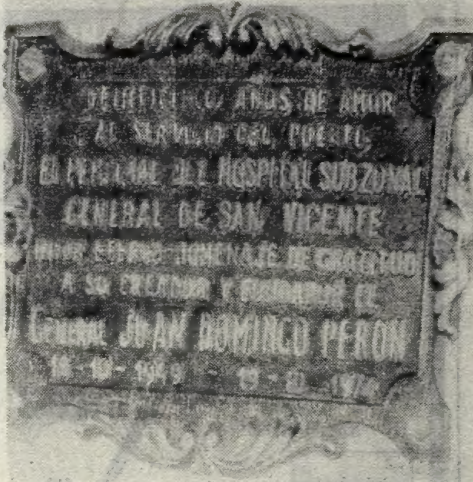 VEINTICINCO AÑOS DE AMOR
AL SERVICIO DEL PUEBLO,
EL PERSONAL DEL HOSPITAL SUBZONAL
GENERAL DE SAN VICENTE
HOMENAJE DE GRATITUD
A SU CREADOR Y
GENERAL JUAN DOMINGO PERON
- 1949 -